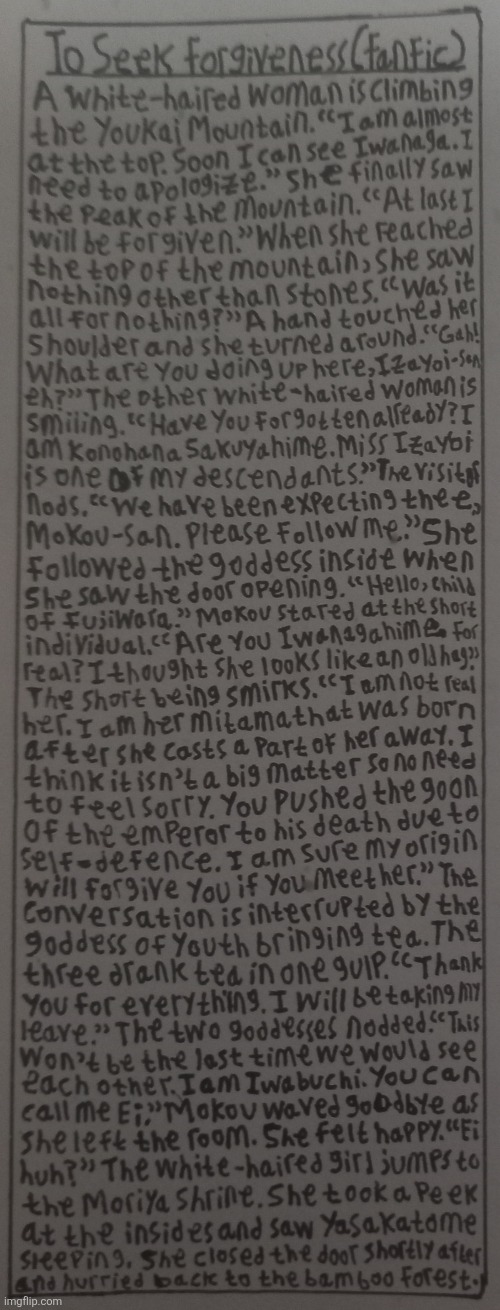 To Seek Forgiveness (fanfic)
A white-haired woman is climbing
the Youkai Mountain. "I am almost
at the top. Soon I can see Iwanaga. I
need to apologize." She finally saw
the peak of the mountain. "At last I
will be forgiven." When she reached
the top of the mountain, she saw
nothing other than stones. "Was it
all for nothing?" A hand touched her
shoulder and she turned around. "Gah!
What are you doing up here, Izayoi-san
eh?" The other white-haired woman is
smiling. "Have you forgotten already? I
am Konohana Sakuyahime. Miss Izayoi
is one of my descendants." The visitor
nods. "We have been expecting thee,
Mokou-san. Please follow me." She
followed the goddess inside when
she saw the door opening. "Hello, child
of Fujiwara." Mokou stared at the short
individual. "Are you Iwanagahime for
real? I thought she looks like an old hag."
The short being smirks. "I am not real
her. I am her mitama that was born
after she casts a part of her away. I
think it isn't a big matter so no need
to feel sorry. You pushed the goon
of the emperor to his death due to
self-defence. I am sure my origin
will forgive you if you meet her." The
conversation is interrupted by the
goddess of youth bringing tea. The
three drank tea in one gulp. "Thank
you for everything. I will be taking my
leave." The two goddesses nodded. "This
won't be the last time we would see
each other. I am Iwabuchi. You can
call me Ei." Mokou waved goodbye as
she left the room. She felt happy. "Ei
huh?" The white-haired girl jumps to
the Moriya Shrine. She took a peek
at the insides and saw Yasakatome
sleeping. She closed the door shortly after
and hurried back to the bamboo forest.
imgflip.com